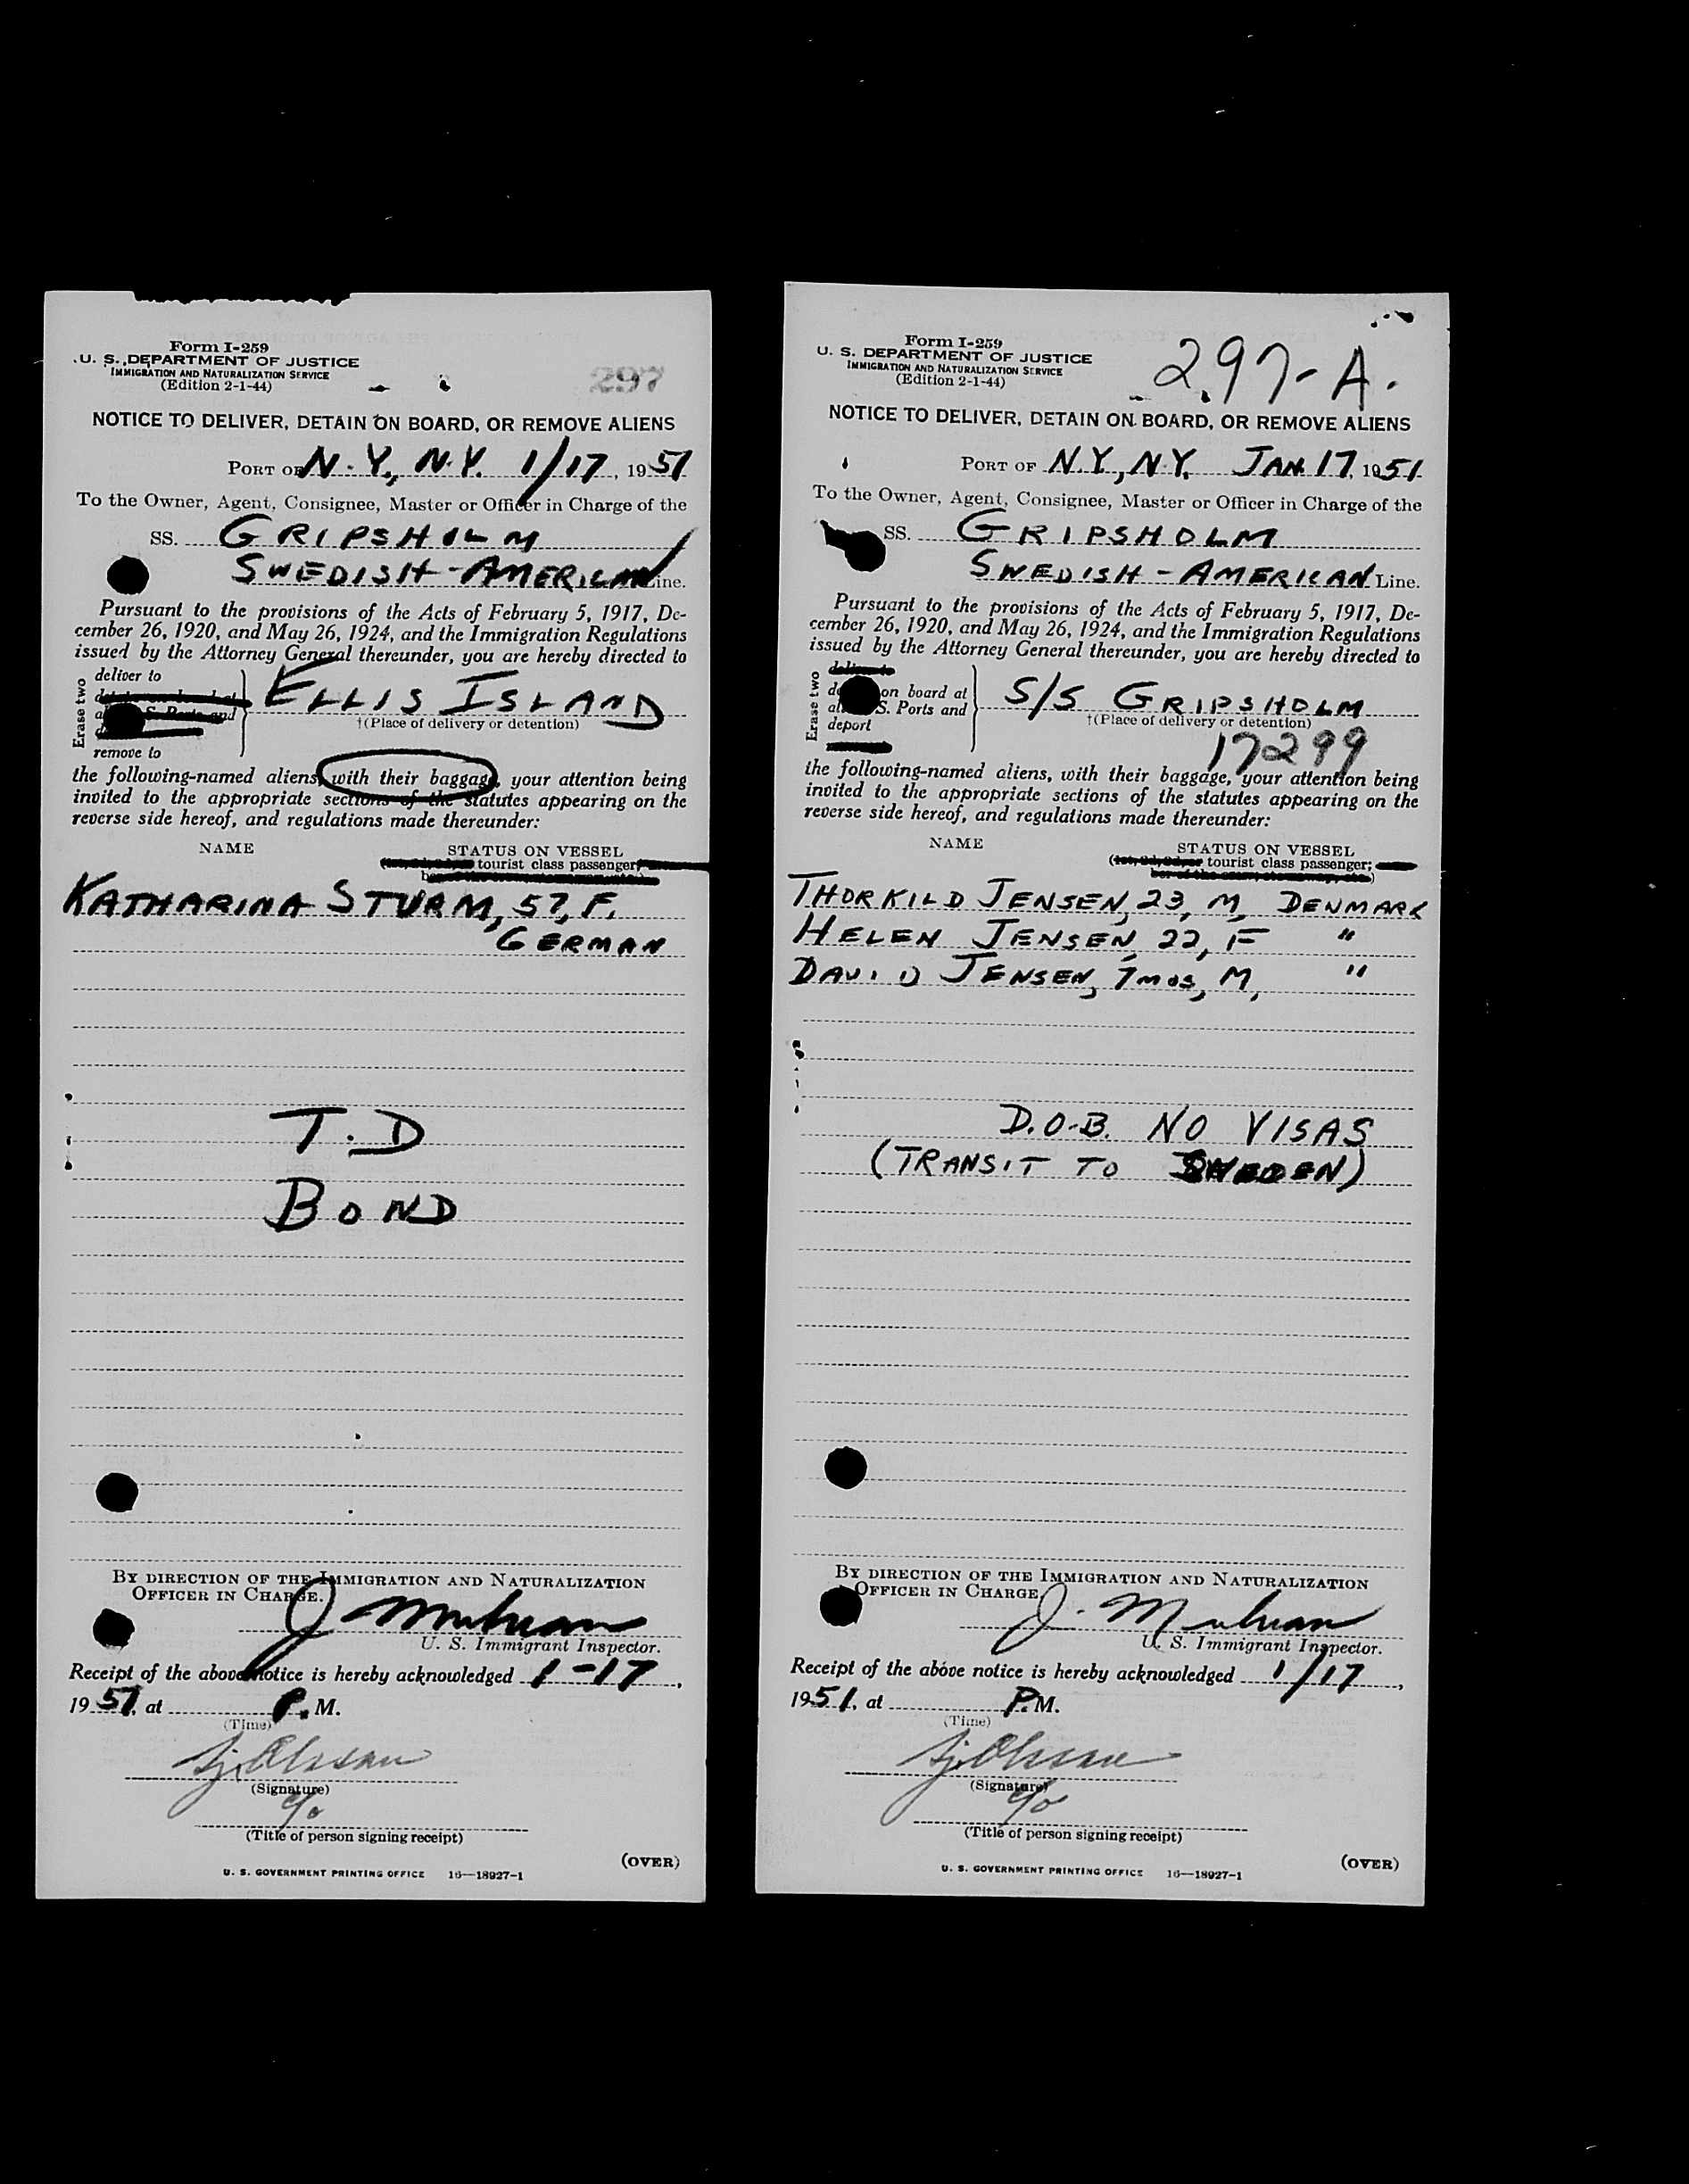 Form I-259
U. S. DEPARTMENT OF JUSTICE
IMMIGRATION AND NATURALIZATION SERVICE
(Edition 2-1-44)
297
NOTICE TO DELIVER, DETAIN ON BOARD, OR REMOVE ALIENS
PORT OF N.Y., N.Y. 1/17, 1951
To the Owner, Agent, Consignee, Master or Officer in Charge of the
SS. GRIPSHOLM
SWEDISH-AMERICAN Line.
Pursuant to the provisions of the Acts of February 5, 1917, De-
cember 26, 1920, and May 26, 1924, and the Immigration Regulations
issued by the Attorney General thereunder, you are hereby directed to
Erase two
deliver to
ELLIS ISLAND
†(Place of delivery or detention)
remove to
the following-named aliens, with their baggage, your attention being
invited to the appropriate sections of the statutes appearing on the
reverse side hereof, and regulations made thereunder:
NAME STATUS ON VESSEL
tourist class passenger;
KATHARINA STURM, 57, F.
GERMAN
T.D
BOND
BY DIRECTION OF THE IMMIGRATION AND NATURALIZATION
OFFICER IN CHARGE.
U. S. Immigrant Inspector.
Receipt of the above notice is hereby acknowledged 1-17,
1951, at P.M.
(Time)
(Signature)
(Title of person signing receipt)
(OVER)
U. S. GOVERNMENT PRINTING OFFICE 16—18927-1
Form I-259
U. S. DEPARTMENT OF JUSTICE
IMMIGRATION AND NATURALIZATION SERVICE
(Edition 2-1-44)
297-A.
NOTICE TO DELIVER, DETAIN ON BOARD, OR REMOVE ALIENS
PORT OF N.Y., N.Y. JAN. 17, 1951
To the Owner, Agent, Consignee, Master or Officer in Charge of the
SS. GRIPSHOLM
SWEDISH-AMERICAN Line.
Pursuant to the provisions of the Acts of February 5, 1917, De-
cember 26, 1920, and May 26, 1924, and the Immigration Regulations
issued by the Attorney General thereunder, you are hereby directed to
Erase two
on board at
S. Ports and
deport
S/S GRIPSHOLM
†(Place of delivery or detention)
17299
the following-named aliens, with their baggage, your attention being
invited to the appropriate sections of the statutes appearing on the
reverse side hereof, and regulations made thereunder:
NAME STATUS ON VESSEL
tourist class passenger;
THORKILD JENSEN, 23, M, DENMARK
HELEN JENSEN, 22, F "
DAVID JENSEN, 7mos, M, "
D.O.B. NO VISAS
(TRANSIT TO SWEDEN)
BY DIRECTION OF THE IMMIGRATION AND NATURALIZATION
OFFICER IN CHARGE
U. S. Immigrant Inspector.
Receipt of the above notice is hereby acknowledged 1/17,
1951, at P.M.
(Time)
(Signature)
(Title of person signing receipt)
(OVER)
U. S. GOVERNMENT PRINTING OFFICE 16—18927-1